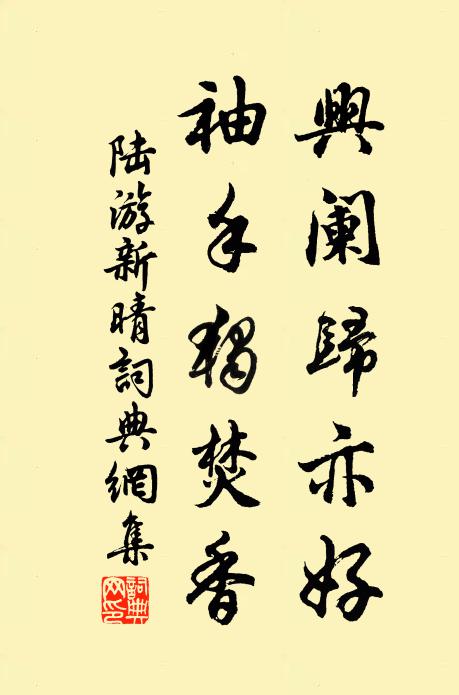 興闌歸亦好
袖手獨焚香
陸游新晴詞典網集
詞典網印